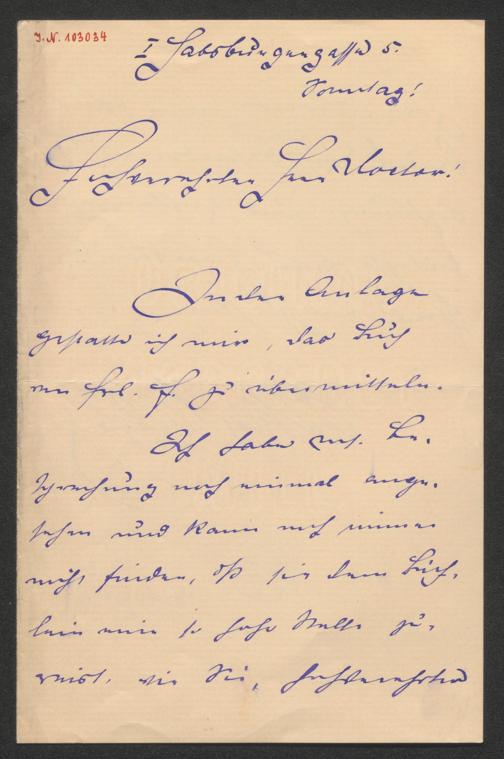 J.N. 103034
I Habsburgergasse 5.
Sonntag!
Hochverehrter Herr Doctor!
In der Anlage
gestatte ich mir, das Buch
von Frl. F. zu übermitteln.
Ich habe m. Be-
sprechung noch einmal ange-
sehen und kann noch immer
nicht finden, daß sie dem Büch-
lein eine so hohe Stelle zu-
weist, wie Sie, hochverehrter